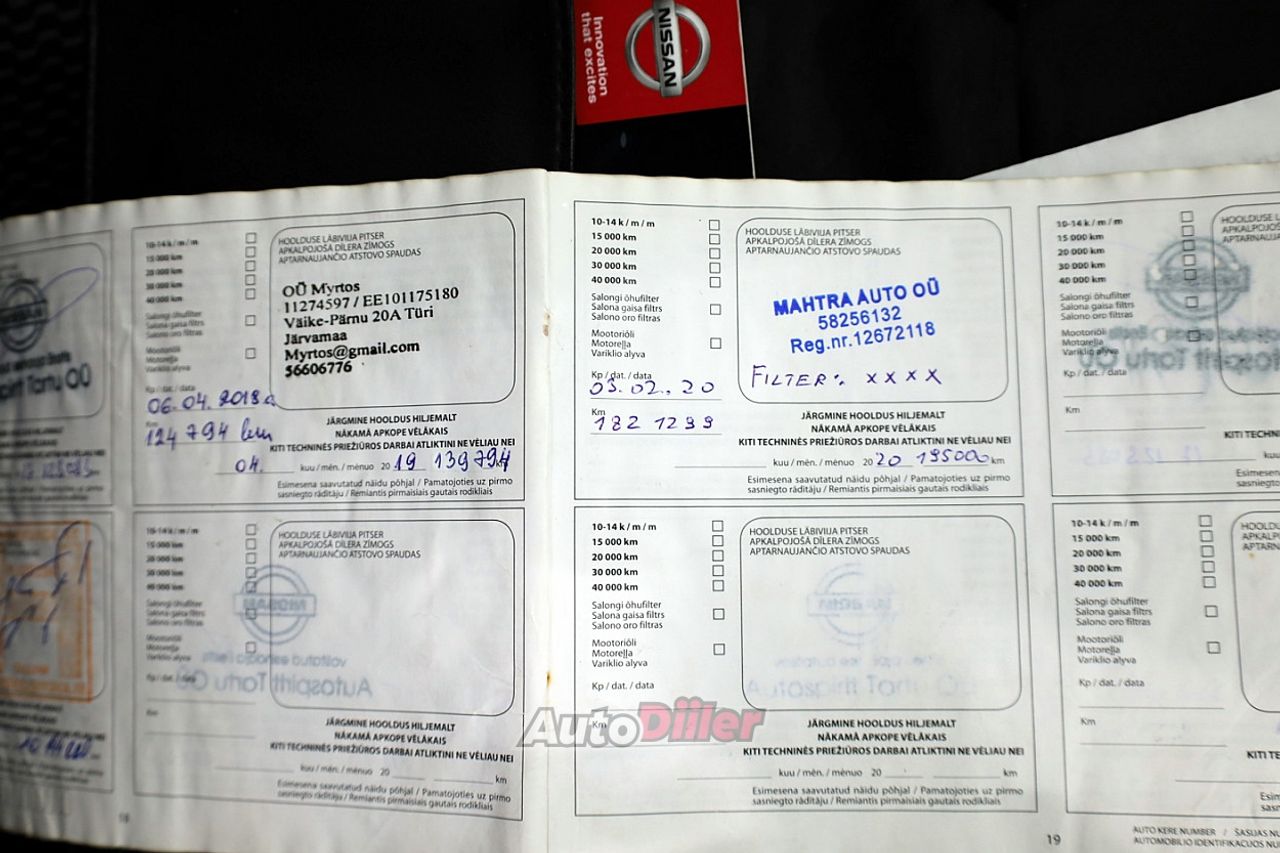 Innovation
that excites
NISSAN
10-14 k / m / m
15 000 km
20 000 km
30 000 km
40 000 km
Salongi õhufilter
Salona gaisa filtrs
Salono oro filtras
Mootoriõli
Motoreļļa
Variklio alyva
Kp / dat. / data
06.04.2018a
Km
124 794 km
HOOLDUSE LÄBIVIIJA PITSER
APKALPOJOŠĀ DĪLERA ZĪMOGS
APTARNAUJANČIO ATSTOVO SPAUDAS
OÜ Myrtos
11274597 / EE101175180
Väike-Pärnu 20A Türi
Järvamaa
Myrtos@gmail.com
56606776
JÄRGMINE HOOLDUS HILJEMALT
NĀKAMĀ APKOPE VĒLĀKAIS
KITI TECHNINĖS PRIEŽIŪROS DARBAI ATLIKTINI NE VĖLIAU NEI
04. kuu / mēn. / mėnuo 20 19 139794 km
Esimesena saavutatud näidu põhjal / Pamatojoties uz pirmo
sasniegto rādītāju / Remiantis pirmaisiais gautais rodikliais
10-14 k / m / m
15 000 km
20 000 km
30 000 km
40 000 km
Salongi õhufilter
Salona gaisa filtrs
Salono oro filtras
Mootoriõli
Motoreļļa
Variklio alyva
Kp / dat. / data
03.02.20
Km
182 1299
HOOLDUSE LÄBIVIIJA PITSER
APKALPOJOŠĀ DĪLERA ZĪMOGS
APTARNAUJANČIO ATSTOVO SPAUDAS
MAHTRA AUTO OÜ
58256132
Reg.nr.12672118
FILTER: XXXX
JÄRGMINE HOOLDUS HILJEMALT
NĀKAMĀ APKOPE VĒLĀKAIS
KITI TECHNINĖS PRIEŽIŪROS DARBAI ATLIKTINI NE VĖLIAU NEI
kuu / mēn. / mėnuo 20 20 19500 km
Esimesena saavutatud näidu põhjal / Pamatojoties uz pirmo
sasniegto rādītāju / Remiantis pirmaisiais gautais rodikliais
10-14 k / m / m
15 000 km
20 000 km
30 000 km
40 000 km
Salongi õhufilter
Salona gaisa filtrs
Salono oro filtras
Mootoriõli
Motoreļļa
Variklio alyva
Kp / dat. / data
Km
10-14 k / m / m
15 000 km
20 000 km
30 000 km
40 000 km
Salongi õhufilter
Salona gaisa filtrs
Salono oro filtras
Mootoriõli
Motoreļļa
Variklio alyva
Kp / dat. / data
Km
HOOLDUSE LÄBIVIIJA PITSER
APKALPOJOŠĀ DĪLERA ZĪMOGS
APTARNAUJANČIO ATSTOVO SPAUDAS
JÄRGMINE HOOLDUS HILJEMALT
NĀKAMĀ APKOPE VĒLĀKAIS
KITI TECHNINĖS PRIEŽIŪROS DARBAI ATLIKTINI NE VĖLIAU NEI
kuu / mēn. / mėnuo 20 km
Esimesena saavutatud näidu põhjal / Pamatojoties uz pirmo
sasniegto rādītāju / Remiantis pirmaisiais gautais rodikliais
10-14 k / m / m
15 000 km
20 000 km
30 000 km
40 000 km
Salongi õhufilter
Salona gaisa filtrs
Salono oro filtras
Mootoriõli
Motoreļļa
Variklio alyva
Kp / dat. / data
Km
HOOLDUSE LÄBIVIIJA PITSER
APKALPOJOŠĀ DĪLERA ZĪMOGS
APTARNAUJANČIO ATSTOVO SPAUDAS
JÄRGMINE HOOLDUS HILJEMALT
NĀKAMĀ APKOPE VĒLĀKAIS
KITI TECHNINĖS PRIEŽIŪROS DARBAI ATLIKTINI NE VĖLIAU NEI
kuu / mēn. / mėnuo 20 km
Esimesena saavutatud näidu põhjal / Pamatojoties uz pirmo
sasniegto rādītāju / Remiantis pirmaisiais gautais rodikliais
10-14 k / m / m
15 000 km
20 000 km
30 000 km
40 000 km
Salongi õhufilter
Salona gaisa filtrs
Salono oro filtras
Mootoriõli
Motoreļļa
Variklio alyva
Kp / dat. / data
Km
AutoDiiler
18
19
AUTO KERE NUMBER / ŠASIJAS
AUTOMOBILIO IDENTIFIKACIJOS